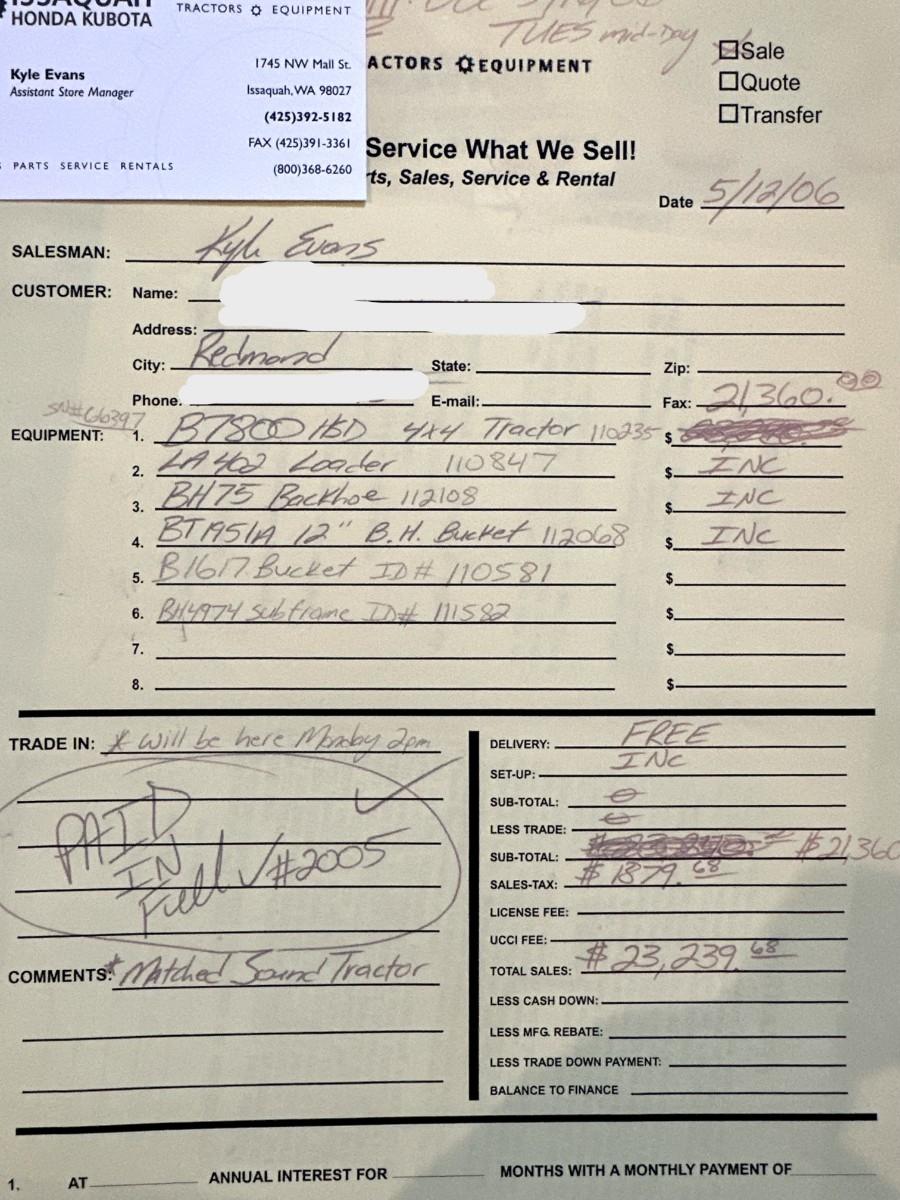 ISSAQUAH
HONDA KUBOTA
TRACTORS EQUIPMENT
Kyle Evans
Assistant Store Manager
1745 NW Mall St.
Issaquah, WA 98027
(425)392-5182
FAX (425)391-3361
(800)368-6260
PARTS SERVICE RENTALS
TUES mid-Day
ACTORS EQUIPMENT
Sale
Quote
Transfer
Service What We Sell!
ts, Sales, Service & Rental
Date 5/12/06
SALESMAN: Kyle Evans
CUSTOMER: Name:
Address:
City: Redmond State: Zip:
Phone: E-mail: Fax: 21,360.00
SN# 66397
EQUIPMENT: 1. B7800 HSD 4x4 Tractor 110235 $
2. LA402 Loader 110847 $ INC
3. BH75 Backhoe 112108 $ INC
4. BT1951A 12" B.H. Bucket 112068 $ INC
5. B1617 Bucket ID# 110581 $
6. BH4974 Subframe ID# 111582 $
7. $
8. $
TRADE IN: * Will be here Monday 2pm
PAID
IN
Full ✓#2005
COMMENTS: * Matched Sound Tractor
DELIVERY: FREE
SET-UP: INC
SUB-TOTAL: 0
LESS TRADE: 0
SUB-TOTAL: $21,360
SALES-TAX: $1879.68
LICENSE FEE:
UCCI FEE:
TOTAL SALES: $23,239.68
LESS CASH DOWN:
LESS MFG. REBATE:
LESS TRADE DOWN PAYMENT:
BALANCE TO FINANCE
1. AT ANNUAL INTEREST FOR MONTHS WITH A MONTHLY PAYMENT OF